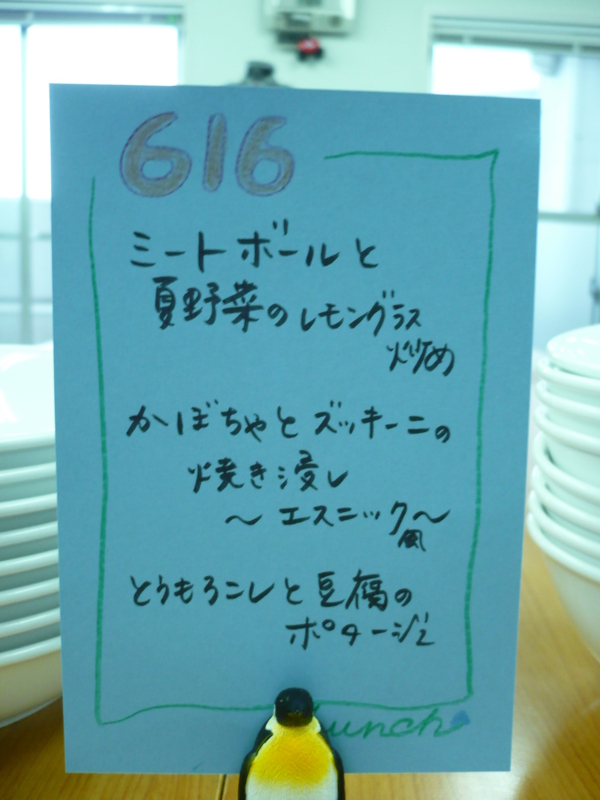 616
ミートボールと
夏野菜のレモングラス
炒め
かぼちゃとズッキーニの
焼き浸し
〜エスニック風〜
とうもろこしと豆腐の
ポタージュ
unch